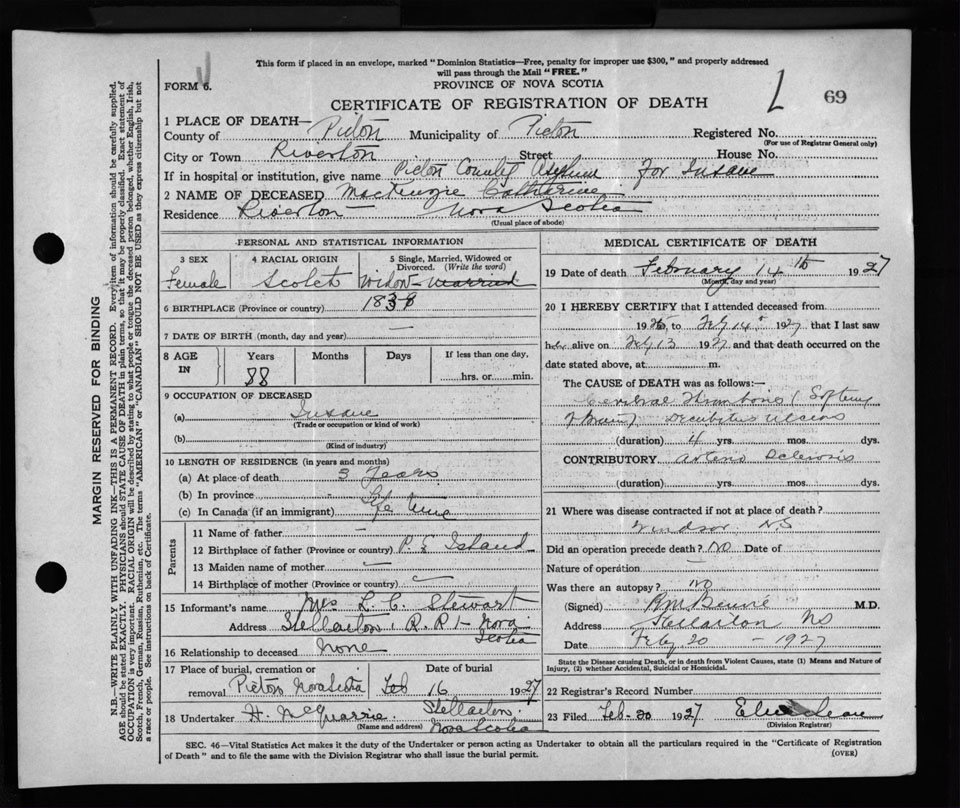 This form if placed in an envelope, marked "Dominion Statistics—Free, penalty for improper use $300," and properly addressed
will pass through the Mail "FREE."
FORM 6.
PROVINCE OF NOVA SCOTIA
CERTIFICATE OF REGISTRATION OF DEATH
L 69
1 PLACE OF DEATH—
County of Pictou Municipality of Pictou Registered No.
(For use of Registrar General only)
City or Town Riverton Street House No.
If in hospital or institution, give name Pictou County Asylum For Insane
2 NAME OF DECEASED MacKenzie Catherine
Residence Riverton — Nova Scotia
(Usual place of abode)
PERSONAL AND STATISTICAL INFORMATION
3 SEX Female
4 RACIAL ORIGIN Scotch
5 Single, Married, Widowed or Divorced. (Write the word) Widow married
6 BIRTHPLACE (Province or country) 1838
7 DATE OF BIRTH (month, day and year) —
8 AGE IN Years Months Days If less than one day,
88 hrs. or min.
9 OCCUPATION OF DECEASED
(a) Insane
(Trade or occupation or kind of work)
(b)
(Kind of industry)
10 LENGTH OF RESIDENCE (in years and months)
(a) At place of death 3 Years
(b) In province Life
(c) In Canada (if an immigrant) Life time
Parents
11 Name of father —
12 Birthplace of father (Province or country) P. E Island
13 Maiden name of mother
14 Birthplace of mother (Province or country)
15 Informant's name Mrs L. C. Stewart
Address Stellarton, R.R 1 - Nova Scotia
16 Relationship to deceased none
17 Place of burial, cremation or removal Pictou Nova Scotia Date of burial Feb 16 1927
18 Undertaker H. McQuarrie. Stellarton. Nova Scotia
(Name and address)
MEDICAL CERTIFICATE OF DEATH
19 Date of death February 14th 1927
(Month, day and year)
20 I HEREBY CERTIFY that I attended deceased from
192 to Feb 14 1927 that I last saw
her alive on Feb 13 1927 and that death occurred on the
date stated above, at m.
The CAUSE of DEATH was as follows:—
Cerebral Thrombosis (Softening
of Brain) Decubitus ulcers
(duration) 4 yrs. mos. dys.
CONTRIBUTORY arterio sclerosis
(duration) yrs. mos. dys.
21 Where was disease contracted if not at place of death?
Windsor N.S
Did an operation precede death? No Date of
Nature of operation —
Was there an autopsy? No
(Signed) M.D.
Address Stellarton NS
Date Feby 20 — 1927
State the Disease causing Death, or in death from Violent Causes, state (1) Means and Nature of
Injury, (2) whether Accidental, Suicidal or Homicidal.
22 Registrar's Record Number
23 Filed Feb - 20 1927
(Division Registrar)
SEC. 46—Vital Statistics Act makes it the duty of the Undertaker or person acting as Undertaker to obtain all the particulars required in the "Certificate of Registration
of Death" and to file the same with the Division Registrar who shall issue the burial permit.
(OVER)
MARGIN RESERVED FOR BINDING
N.B.—WRITE PLAINLY WITH UNFADING INK—THIS IS A PERMANENT RECORD. Every item of information should be carefully supplied.
AGE should be stated EXACTLY. PHYSICIANS should STATE CAUSE OF DEATH in plain terms, so that it may be properly classified. Exact statement of
OCCUPATION is very important. RACIAL ORIGIN will be described by stating to what people or tongue the deceased person belonged, whether English, Irish,
Scotch, French, German, Russian, Ruthenian, etc. The terms "AMERICAN" or "CANADIAN" SHOULD NOT BE USED as they express citizenship but not
a race or people. See instructions on back of Certificate.